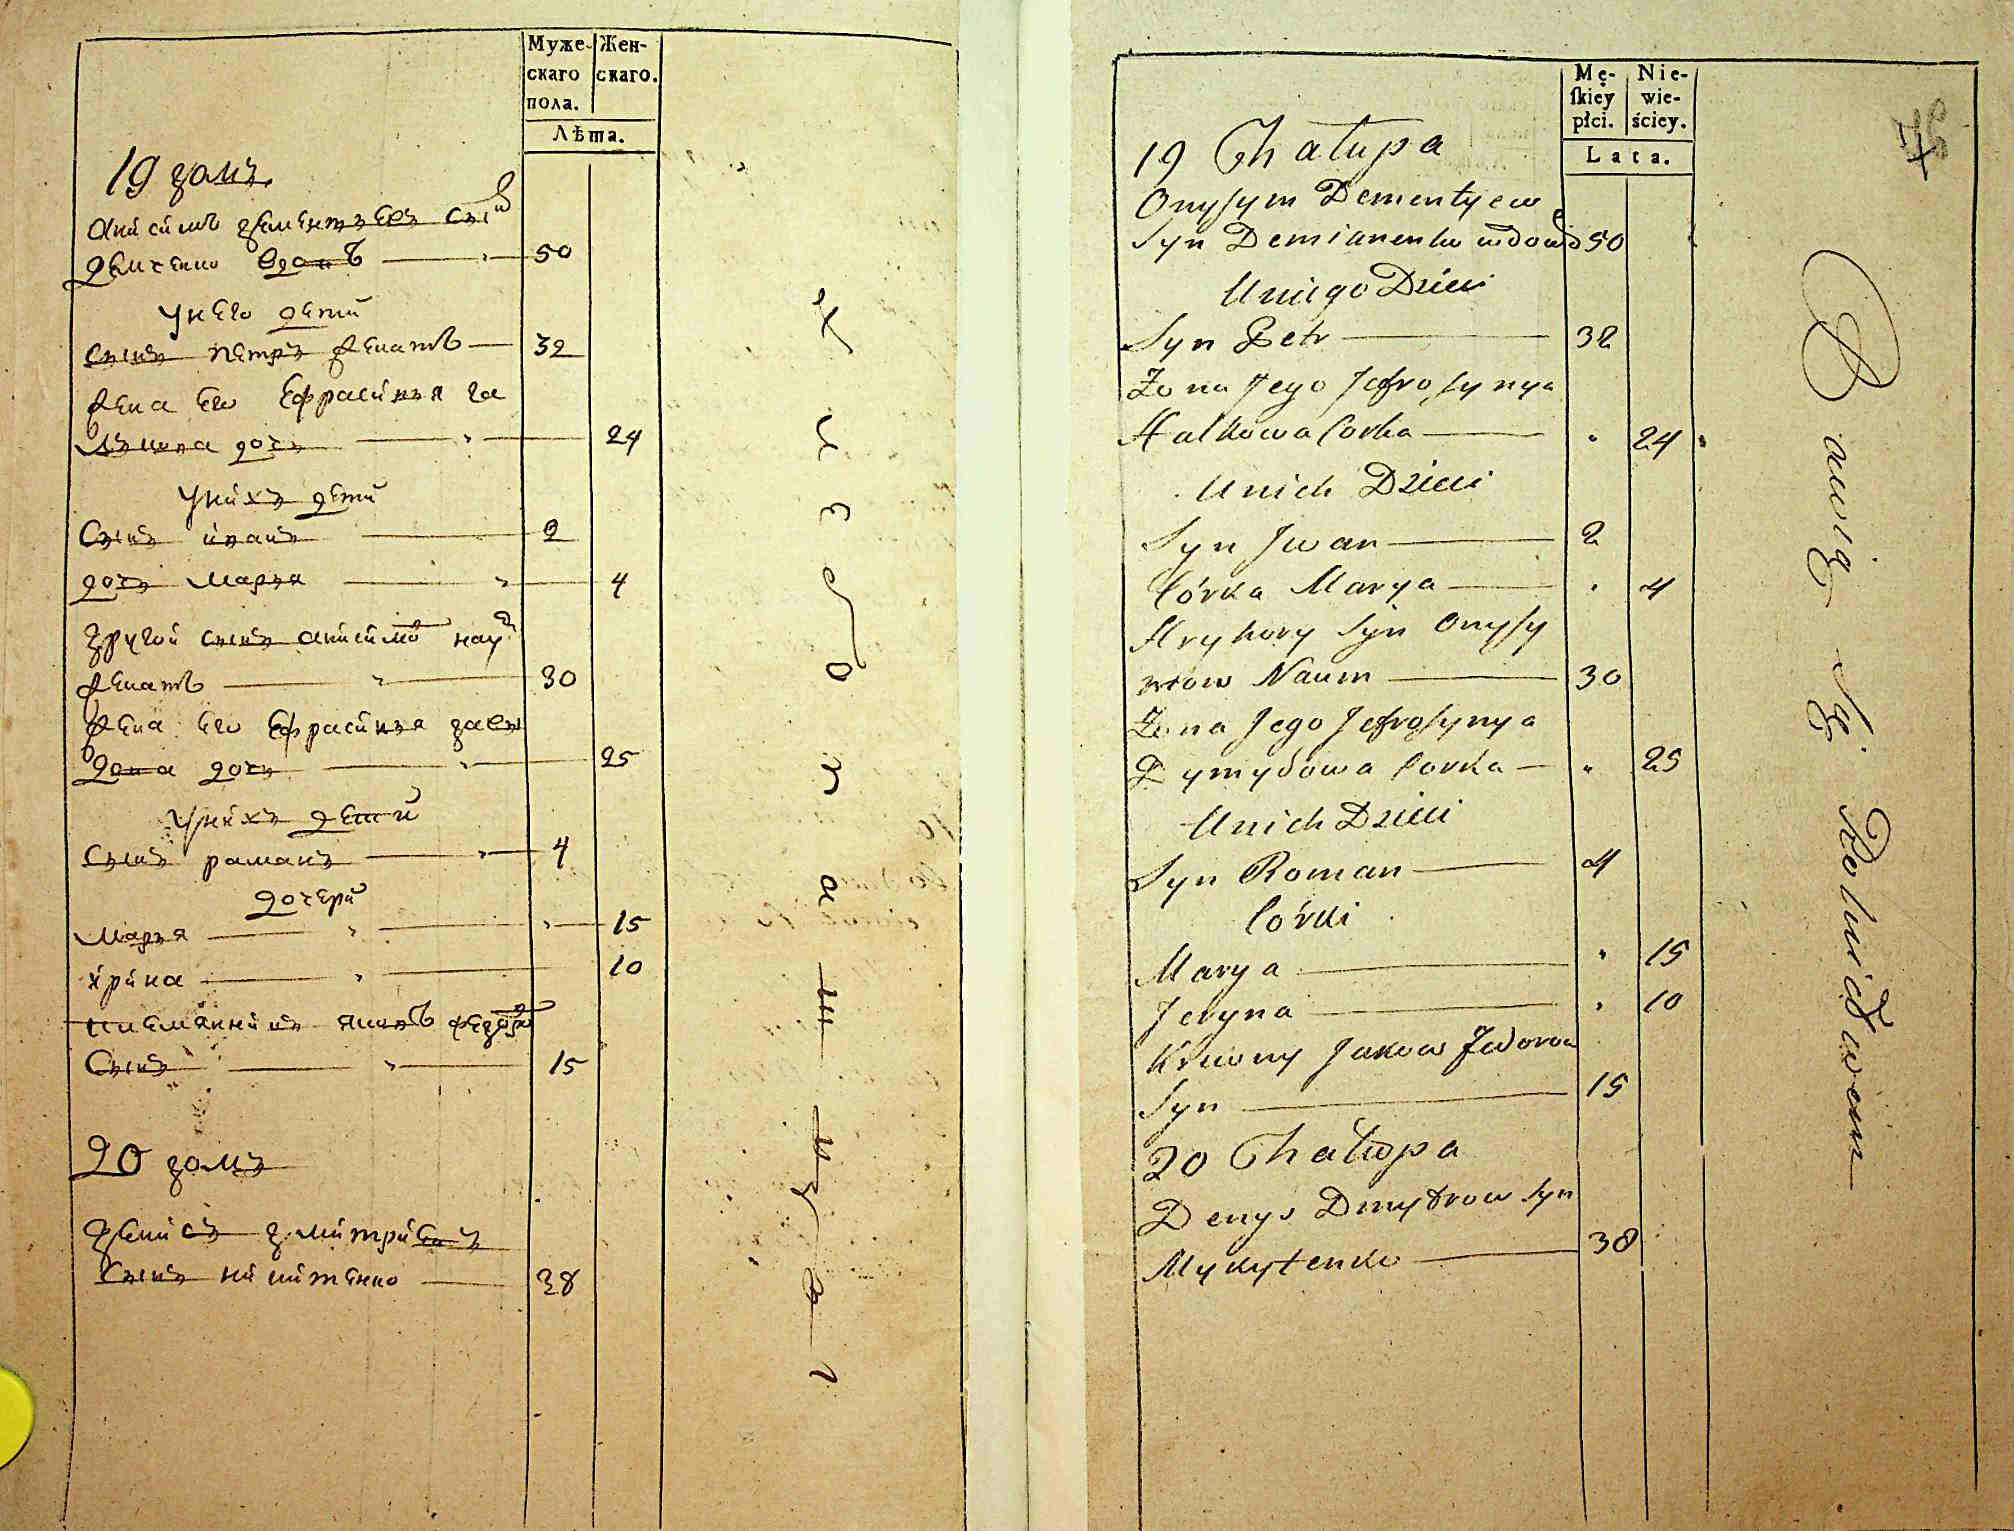 Муже-
скаго
пола.
Жен-
скаго.
Лѣта.
19 домъ
Анисимъ дементъевъ сынъ
демченко вдовъ 50
У него дети
Сынъ петръ женатъ 32
жена его Ефрасинья га
дочь 24
У нихъ дети
Сынъ иванъ 2
дочь марья 4
другой сынъ анисимовъ наумъ
женатъ 30
жена его Ефрасинья давы
дова дочь 25
У нихъ дети
Сынъ раманъ 4
дочери
марья 15
ирина 10
племянникъ яковъ федоровъ
Сынъ 15
20 домъ
денисъ дмитриевъ
Сынъ никитенко 38
Mę-
ſkiey
płci.
Nie-
wie-
ściey.
Lata.
19 Chałupa
Onysym Dementyew
Syn Demianenko wdowiec 50
U niego Dzieci
Syn Petr 32
Zona Jego Jefrosynya
Halkowa Corka 24
U nich Dzieci
Syn Jwan 2
Córka Marya 4
Hryhory Syn Onysy
mow Naum 30
Zona Jego Jefrosynya
Dymydowa Corka 25
U nich Dzieci
Syn Roman 4
Córki
Marya 15
Jeryna 10
Krewny Jakow Fedorow
Syn 15
20 Chałupa
Denys Dmytrow Syn
Mykytenko 38
Bawią Się Rolnictwem